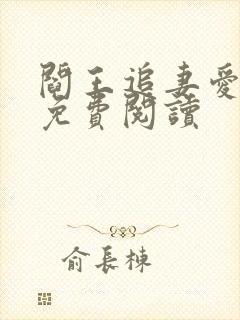 閻王追妻愛
免費閱讀
俞長棟